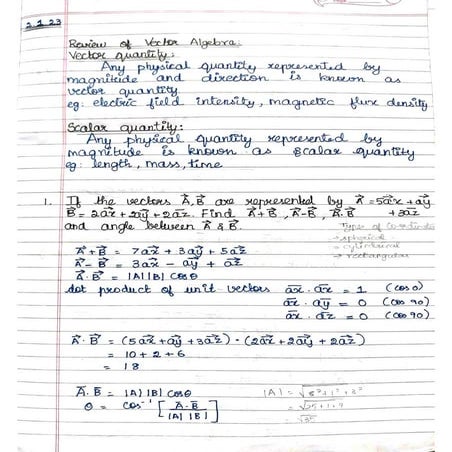 2.1.23
Review of Vector Algebra:
Vector quantity:
Any physical quantity represented by
magnitude and direction is known as
vector quantity
eg: electric field intensity, magnetic flux density
Scalar quantity:
Any physical quantity represented by
magnitude is known as scalar quantity
eg: length, mass, time
1. If the vectors A⃗, B⃗ are represented by A⃗ = 5a⃗x + a⃗y
B⃗ = 2a⃗x + 2a⃗y + 2a⃗z. Find A⃗+B⃗, A⃗-B⃗, A⃗.B⃗ + 3a⃗z
and angle between A⃗ & B⃗.
Types of Co-ordinates
→ spherical
→ cylindrical
→ rectangular
A⃗+B⃗ = 7a⃗x + 3a⃗y + 5a⃗z
A⃗-B⃗ = 3a⃗x - a⃗y + a⃗z
A⃗.B⃗ = |A||B| cosθ
dot product of unit vectors a⃗x . a⃗x = 1 (cos 0)
a⃗x . a⃗y = 0 (cos 90)
a⃗x . a⃗z = 0 (cos 90)
A⃗.B⃗ = (5a⃗x + a⃗y + 3a⃗z) . (2a⃗x + 2a⃗y + 2a⃗z)
= 10 + 2 + 6
= 18
A⃗.B⃗ = |A||B| cosθ |A| = √5²+1²+3²
θ = cos⁻¹ [A⃗.B⃗ / |A||B|] = √25+1+9
= √35